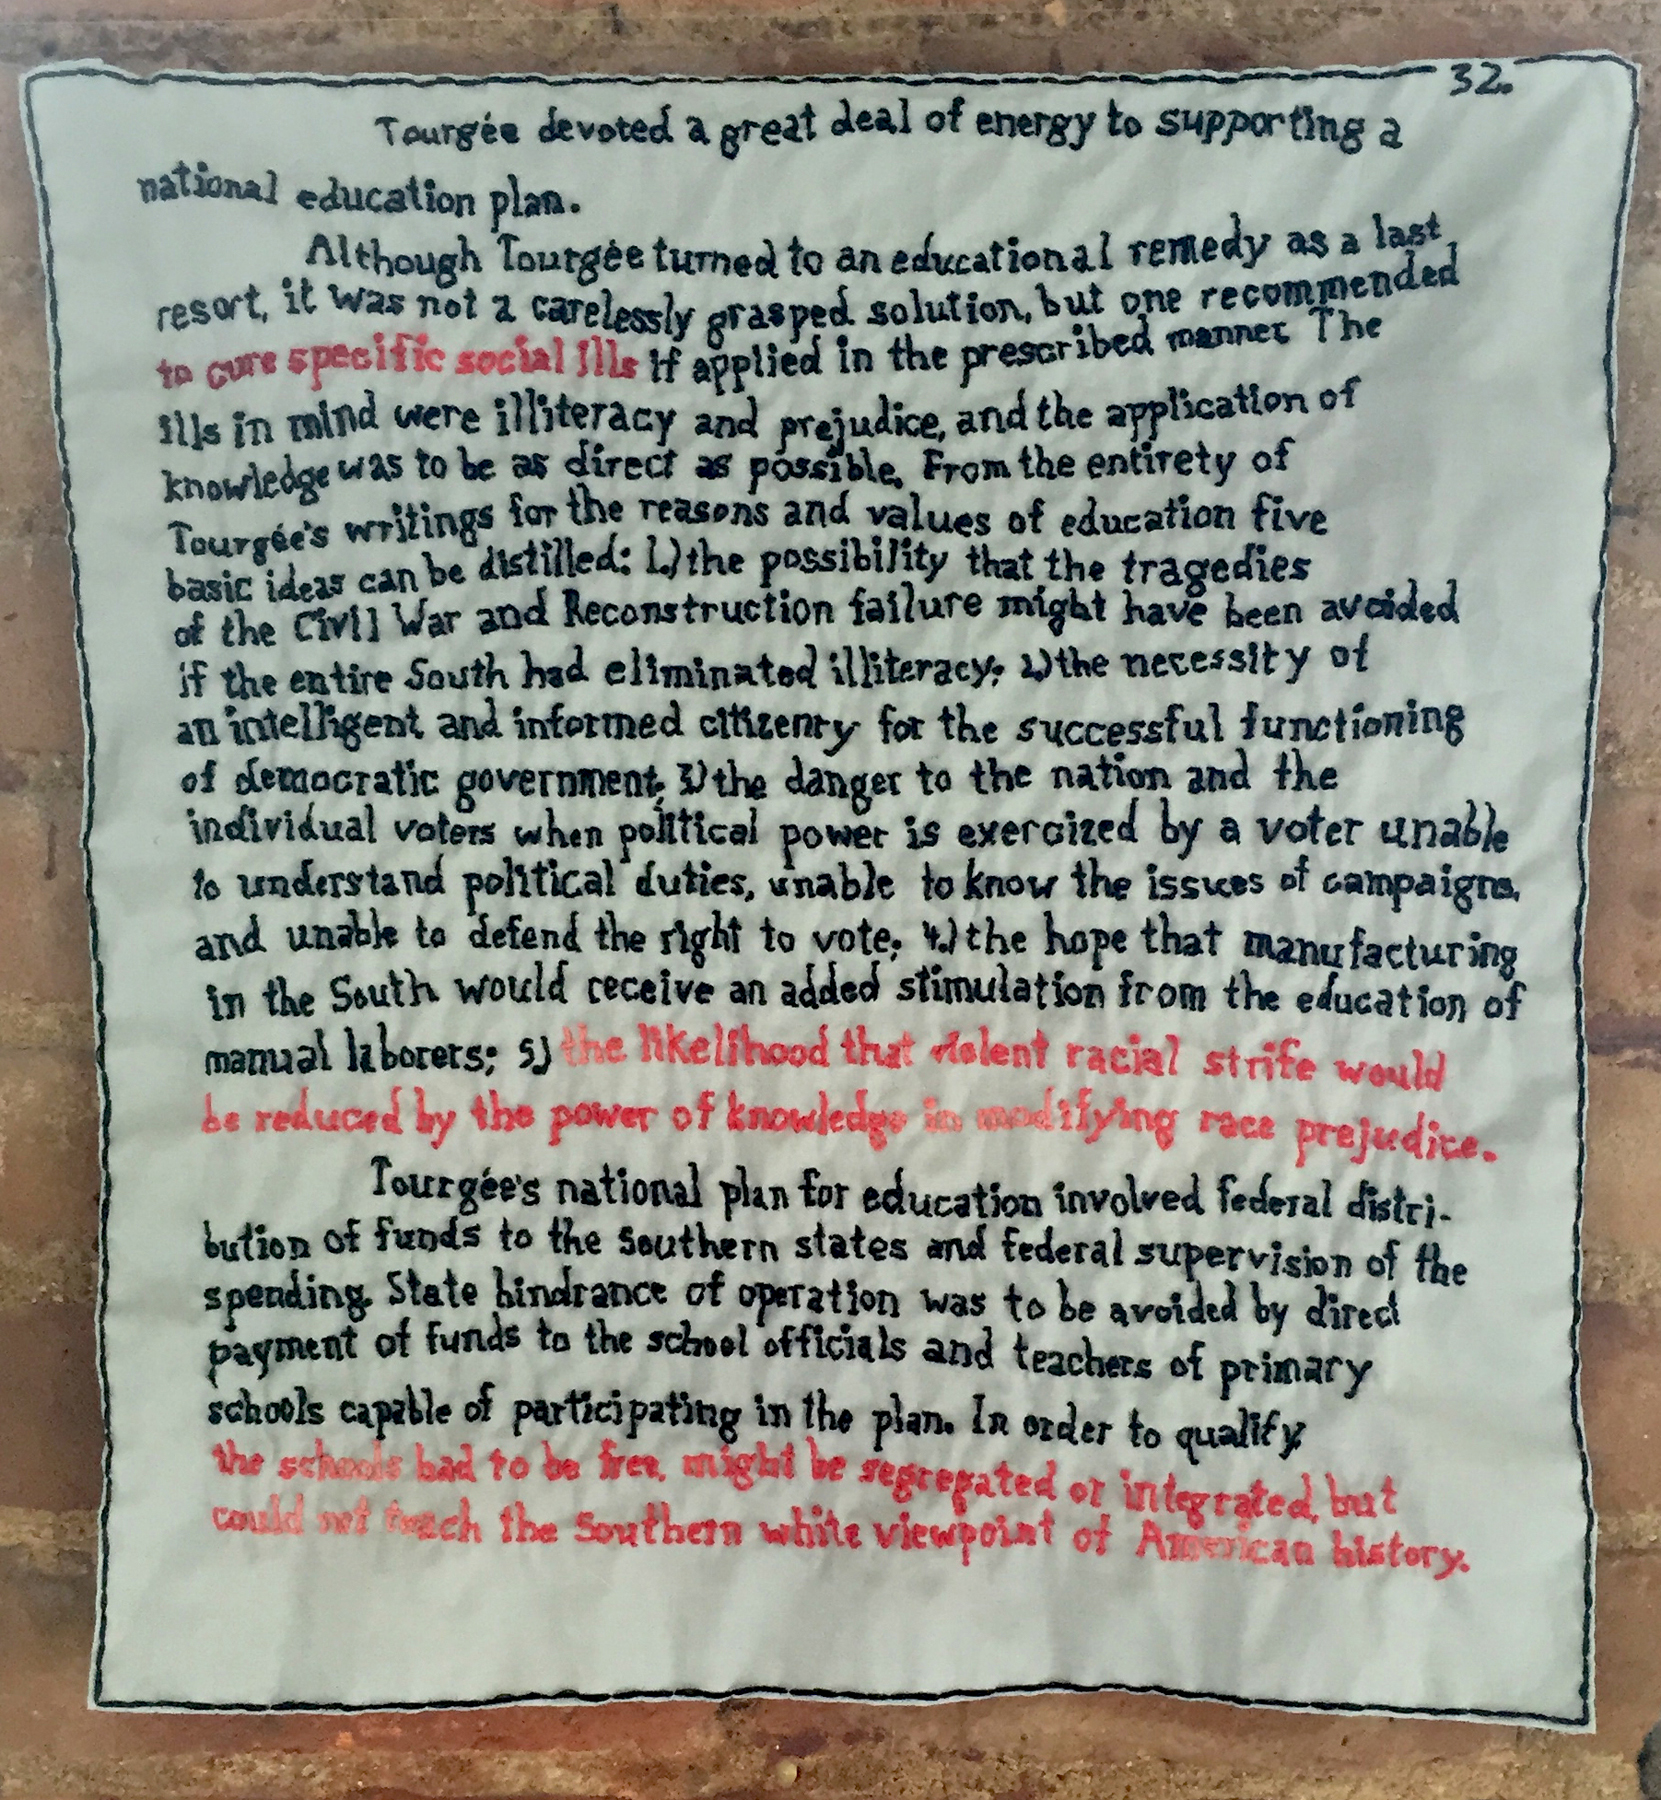 32.
Tourgée devoted a great deal of energy to supporting a
national education plan.
Although Tourgée turned to an educational remedy as a last
resort, it was not a carelessly grasped solution, but one recommended
to cure specific social Ills if applied in the prescribed manner. The
ills in mind were illiteracy and prejudice, and the application of
knowledge was to be as direct as possible. From the entirety of
Tourgée's writings for the reasons and values of education five
basic ideas can be distilled: 1.) the possibility that the tragedies
of the Civil War and Reconstruction failure might have been avoided
if the entire South had eliminated illiteracy; 2.) the necessity of
an intelligent and informed citizenry for the successful functioning
of democratic government; 3.) the danger to the nation and the
individual voters when political power is exercized by a voter unable
to understand political duties, unable to know the issues of campaigns,
and unable to defend the right to vote; 4.) the hope that manufacturing
in the South would receive an added stimulation from the education of
manual laborers; 5.) the likelihood that violent racial strife would
be reduced by the power of knowledge in modifying race prejudice.
Tourgée's national plan for education involved federal distri-
bution of funds to the Southern states and federal supervision of the
spending. State hindrance of operation was to be avoided by direct
payment of funds to the school officials and teachers of primary
schools capable of participating in the plan. In order to qualify,
the schools had to be free, might be segregated or integrated, but
could not teach the Southern white viewpoint of American history.